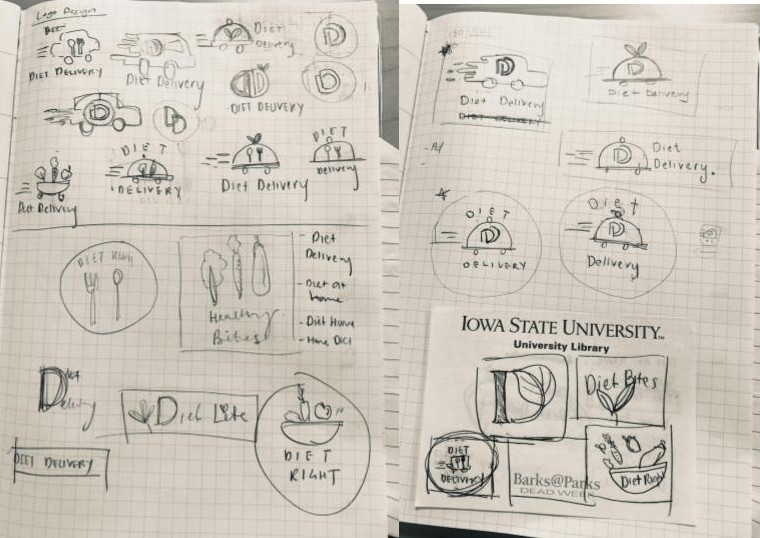 Logo Designs
DIET
DIET DELIVERY
Diet Delivery
Diet
Delivery
D
D
D
DIET DELIVERY
D
D
Diet Delivery
DIET
DELIVERY
Diet Delivery
DIET
Delivery
DIET
Healthy
Bites
- Diet
Delivery
- Diet at
home
- Diet Home
- Home DIET
Diet
Delivery
Diet Lite
DIET
RIGHT
DIET DELIVERY
D
Diet Delivery
DIET DELIVERY
D
Diet Delivery
D
Diet
Delivery.
DIET
D
DELIVERY
Diet
D
Delivery
IOWA STATE UNIVERSITY™
University Library
D
Diet Bites
DIET
DELIVERY
Barks@Parks
DEAD WEEK
Diet Right